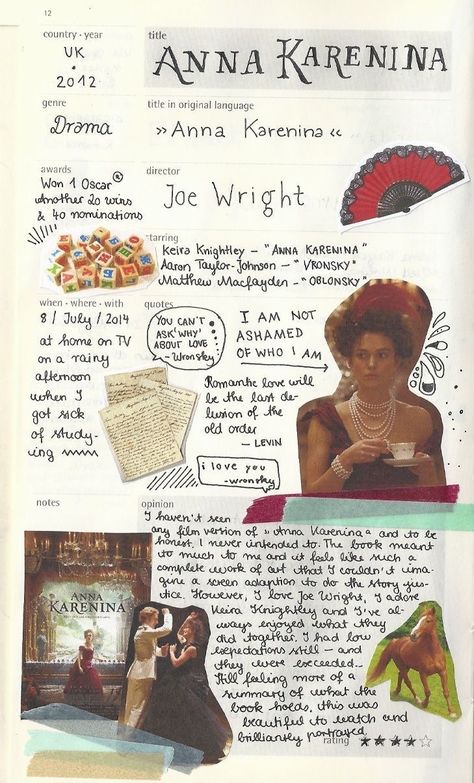 12
country · year
UK
·
2012
title
ANNA KARENINA
genre
Drama
title in original language
»Anna Karenina«
awards
Won 1 Oscar®
Another 20 wins
& 40 nominations
director
Joe Wright
starring
Keira Knightley – "ANNA KARENINA"
Aaron Taylor-Johnson – "VRONSKY"
Matthew Macfayden – "OBLONSKY"
when · where · with
8 / July / 2014
at home on TV
on a rainy
afternoon
when I
got sick
of study-
ing
quotes
YOU CAN'T
ASK 'WHY'
ABOUT LOVE
– Wronsky
I AM NOT
ASHAMED
OF WHO I AM
Romantic love will
be the last de-
lusion of the
old order
— LEVIN
i love you
-wronsky
notes
ANNA
KARENINA
opinion
I haven't seen
any film version of »Anna Karenina« and to be
honest, I never intended to. The book meant
to much to me and it feels like such a
complete work of art that I couldn't ima-
gine a screen adaption to do the story jus-
tice. However, I love Joe Wright, I adore
Keira Knightley and I've al-
ways enjoyed what they
did together. I had low
expectations still – and
they were exceeded..
Still feeling more of a
summary of what the
book holds, this was
beautiful to watch and
brilliantly portrayed.
rating ★★★★☆